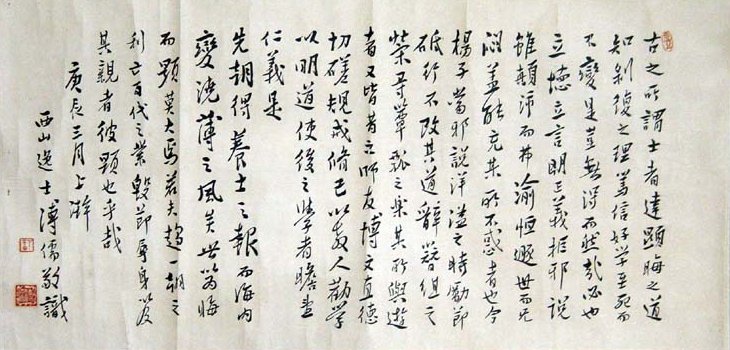 古之所謂士者達顯晦之道
知剝復之理篤信好學至死而
不變是豈無得而然哉必也
立德立言明正義拒邪說
雖顛沛而弗渝恒遯世而无
悶蓋能充其所不惑者也今
楊子當邪說洋溢之時勵節
砥行不改其道辭簪組之
榮尋簞瓢之樂其所與遊
者又皆昔之師友博文直德
切磋規戒脩己以教人勸學
以明道使後之學者瞻盡
仁義是
先朝得養士之報而海内
變澆薄之風矣世鴐晦
而顯莫大焉若夫趨一朝之
利亡百代之業毀節辱身以及
其親者彼顯也乎哉
庚辰三月上澣
西山逸士溥儒敬識